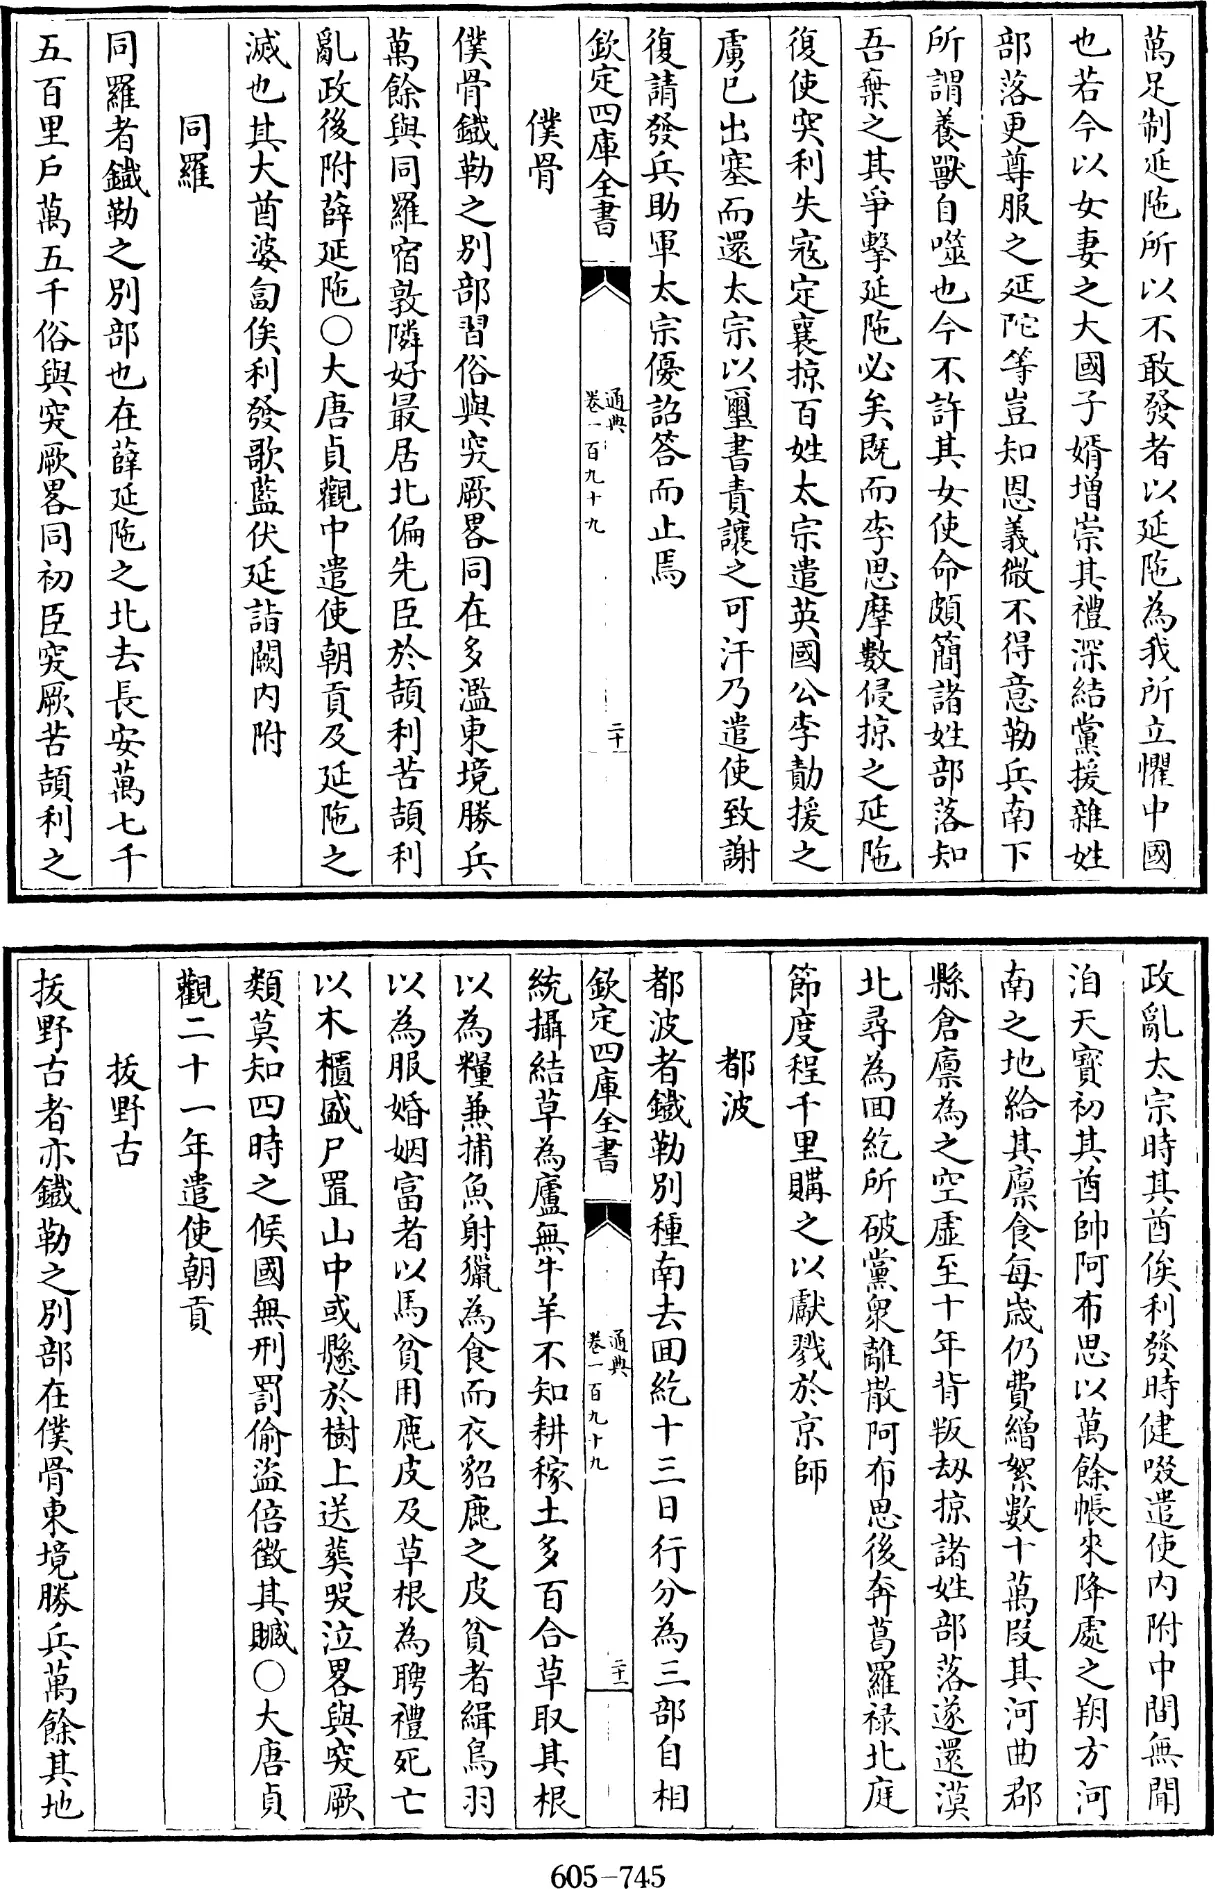 萬足制延陁所以不敢發者以延陁為我所立懼中國
也若今以女妻之大國子婿增崇其禮深結黨援雜姓
部落更尊服之延陀等豈知恩義微不得意勒兵南下
所謂養獸自噬也今不許其女使命頗簡諸姓部落知
吾棄之其爭擊延陁必矣既而李思摩數侵掠之延陁
復使突利失寇定襄掠百姓太宗遣英國公李勣援之
虜已出塞而還太宗以璽書責讓之可汗乃遣使致謝
復請發兵助軍太宗優詔答而止焉
欽定四庫全書
通典
卷一百九十九
二十
僕骨
僕骨鐵勒之別部習俗與突厥畧同在多濫東境勝兵
萬餘與同羅宿敦隣好最居北偏先臣於頡利苦頡利
亂政後附薛延陁○大唐貞觀中遣使朝貢及延陁之
滅也其大酋婆匐俟利發歌藍伏延詣闕内附
同羅
同羅者鐵勒之別部也在薛延陁之北去長安萬七千
五百里戶萬五千俗與突厥畧同初臣突厥苦頡利之
政亂太宗時其酋俟利發時健啜遣使内附中間無聞
洎天寶初其酋帥阿布思以萬餘帳來降處之朔方河
南之地給其廪食每歳仍費繒絮數十萬段其河曲郡
縣倉廪為之空虛至十年背叛刼掠諸姓部落遂還漠
北尋為回紇所破黨衆離散阿布思後奔葛羅禄北庭
節度程千里購之以獻戮於京師
都波
都波者鐵勒別種南去回紇十三日行分為三部自相
欽定四庫全書
通典
卷一百九十九
二十一
統攝結草為廬無牛羊不知耕稼土多百合草取其根
以為糧兼捕魚射獵為食而衣貂鹿之皮貧者緝鳥羽
以為服婚姻富者以馬貧用鹿皮及草根為聘禮死亡
以木櫃盛尸置山中或懸於樹上送葬哭泣畧與突厥
類莫知四時之候國無刑罰偷盜倍徵其贓○大唐貞
觀二十一年遣使朝貢
拔野古
拔野古者亦鐵勒之別部在僕骨東境勝兵萬餘其地
605-745